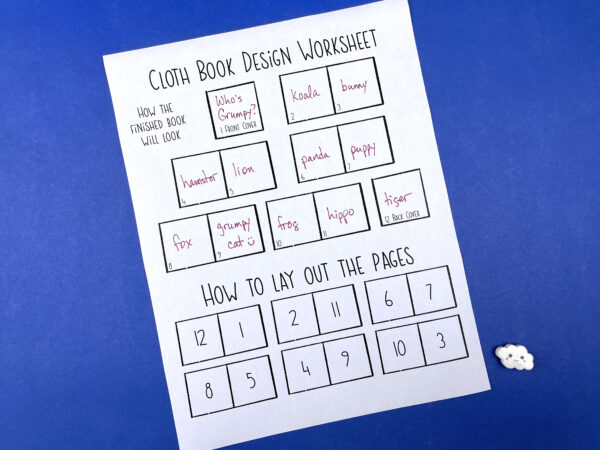 CLOTH BOOK DESIGN WORKSHEET
HOW THE
FINISHED BOOK
WILL LOOK
Who's
Grumpy?
1 FRONT COVER
koala
2
bunny
3
hamster
4
lion
5
panda
6
puppy
7
fox
8
grumpy
cat
9
frog
10
hippo
11
tiger
12 BACK COVER
HOW TO LAY OUT THE PAGES
12 1
2 11
6 7
8 5
4 9
10 3